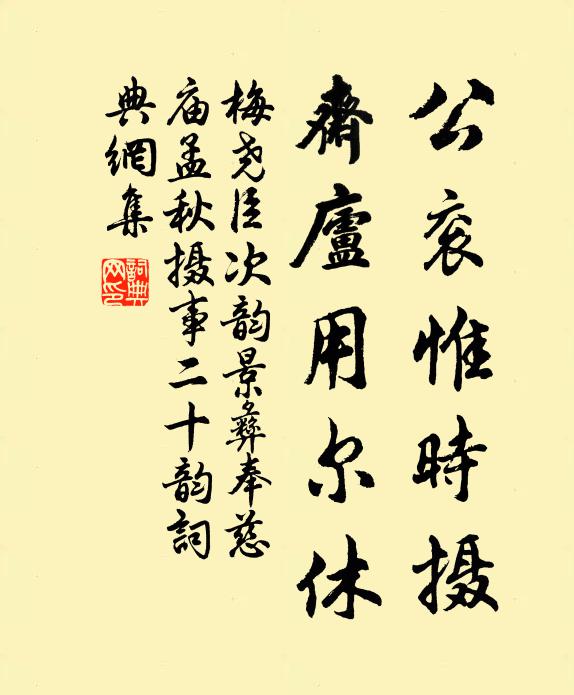 公衮惟時摄
齋廬用尔休
梅尧臣次韵景彝奉慈
庙孟秋摄事二十韵詞
典網集
詞典网印